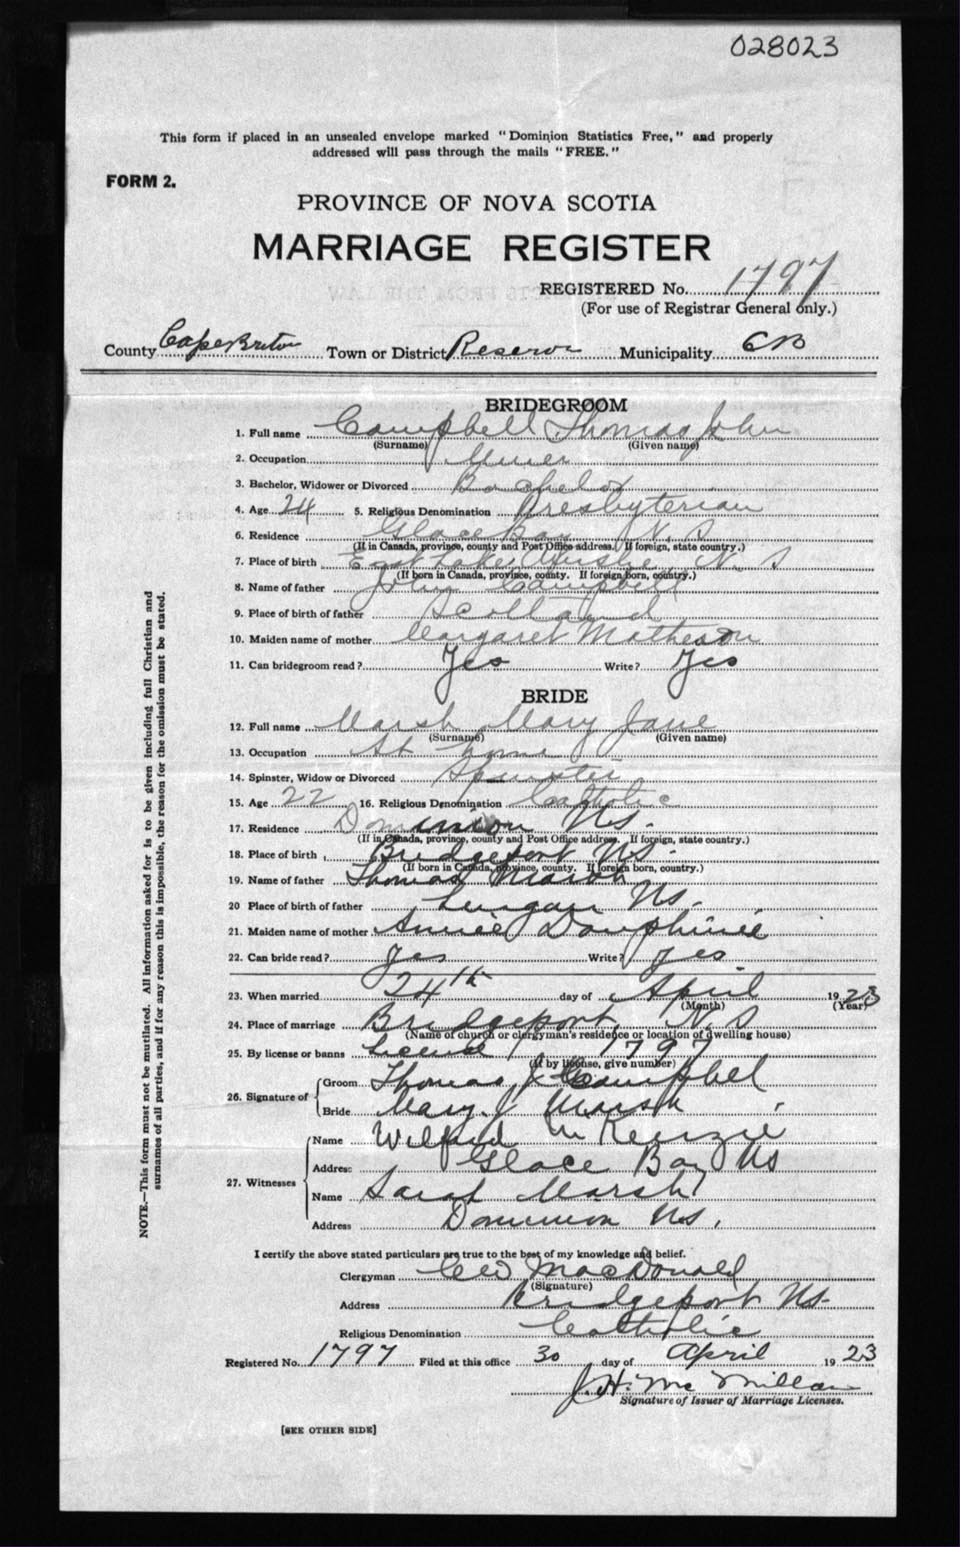 028023
This form if placed in an unsealed envelope marked "Dominion Statistics Free," and properly
addressed will pass through the mails "FREE."
FORM 2.
PROVINCE OF NOVA SCOTIA
MARRIAGE REGISTER
REGISTERED No. 1797
(For use of Registrar General only.)
County Cape Breton Town or District Reserve Municipality CB
BRIDEGROOM
1. Full name Campbell Thomas John
(Surname) (Given name)
2. Occupation Miner
3. Bachelor, Widower or Divorced Bachelor
4. Age 24 5. Religious Denomination Presbyterian
6. Residence Glace Bay N. S
(If in Canada, province, county and Post Office address. If foreign, state country.)
7. Place of birth East Lake Ainslie N. S
(If born in Canada, province, county. If foreign born, country.)
8. Name of father John Campbell
9. Place of birth of father Scotland
10. Maiden name of mother Margaret Matheson
11. Can bridegroom read? Yes Write? Yes
BRIDE
12. Full name Marsh Mary Jane
(Surname) (Given name)
13. Occupation At home
14. Spinster, Widow or Divorced Spinster
15. Age 22 16. Religious Denomination Catholic
17. Residence Dominion NS.
(If in Canada, province, county and Post Office address. If foreign, state country.)
18. Place of birth Bridgeport NS.
(If born in Canada, province, county. If foreign born, country.)
19. Name of father Thomas Marsh
20 Place of birth of father Lingan NS.
21. Maiden name of mother Annie Dauphinie
22. Can bride read? Yes Write? Yes
23. When married 24th day of April 1923
(Month) (Year)
24. Place of marriage Bridgeport, N. S
(Name of church or clergyman's residence or location of dwelling house)
25. By license or banns License 1797
(If by license, give number)
26. Signature of Groom Thomas J Campbel
Bride Mary. J Marsh
27. Witnesses Name Wilfrid McKenzie
Address Glace Bay NS
Name Sarah Marsh
Address Dominion NS.
I certify the above stated particulars are true to the best of my knowledge and belief.
Clergyman CW MacDonald
(Signature)
Address Bridgeport NS.
Religious Denomination Catholic
Registered No. 1797 Filed at this office 30 day of April 1923
J. H. McMillan
Signature of Issuer of Marriage Licenses.
[SEE OTHER SIDE]
NOTE.—This form must not be mutilated. All information asked for is to be given including full Christian and
surnames of all parties, and if for any reason this is impossible, the reason for the omission must be stated.